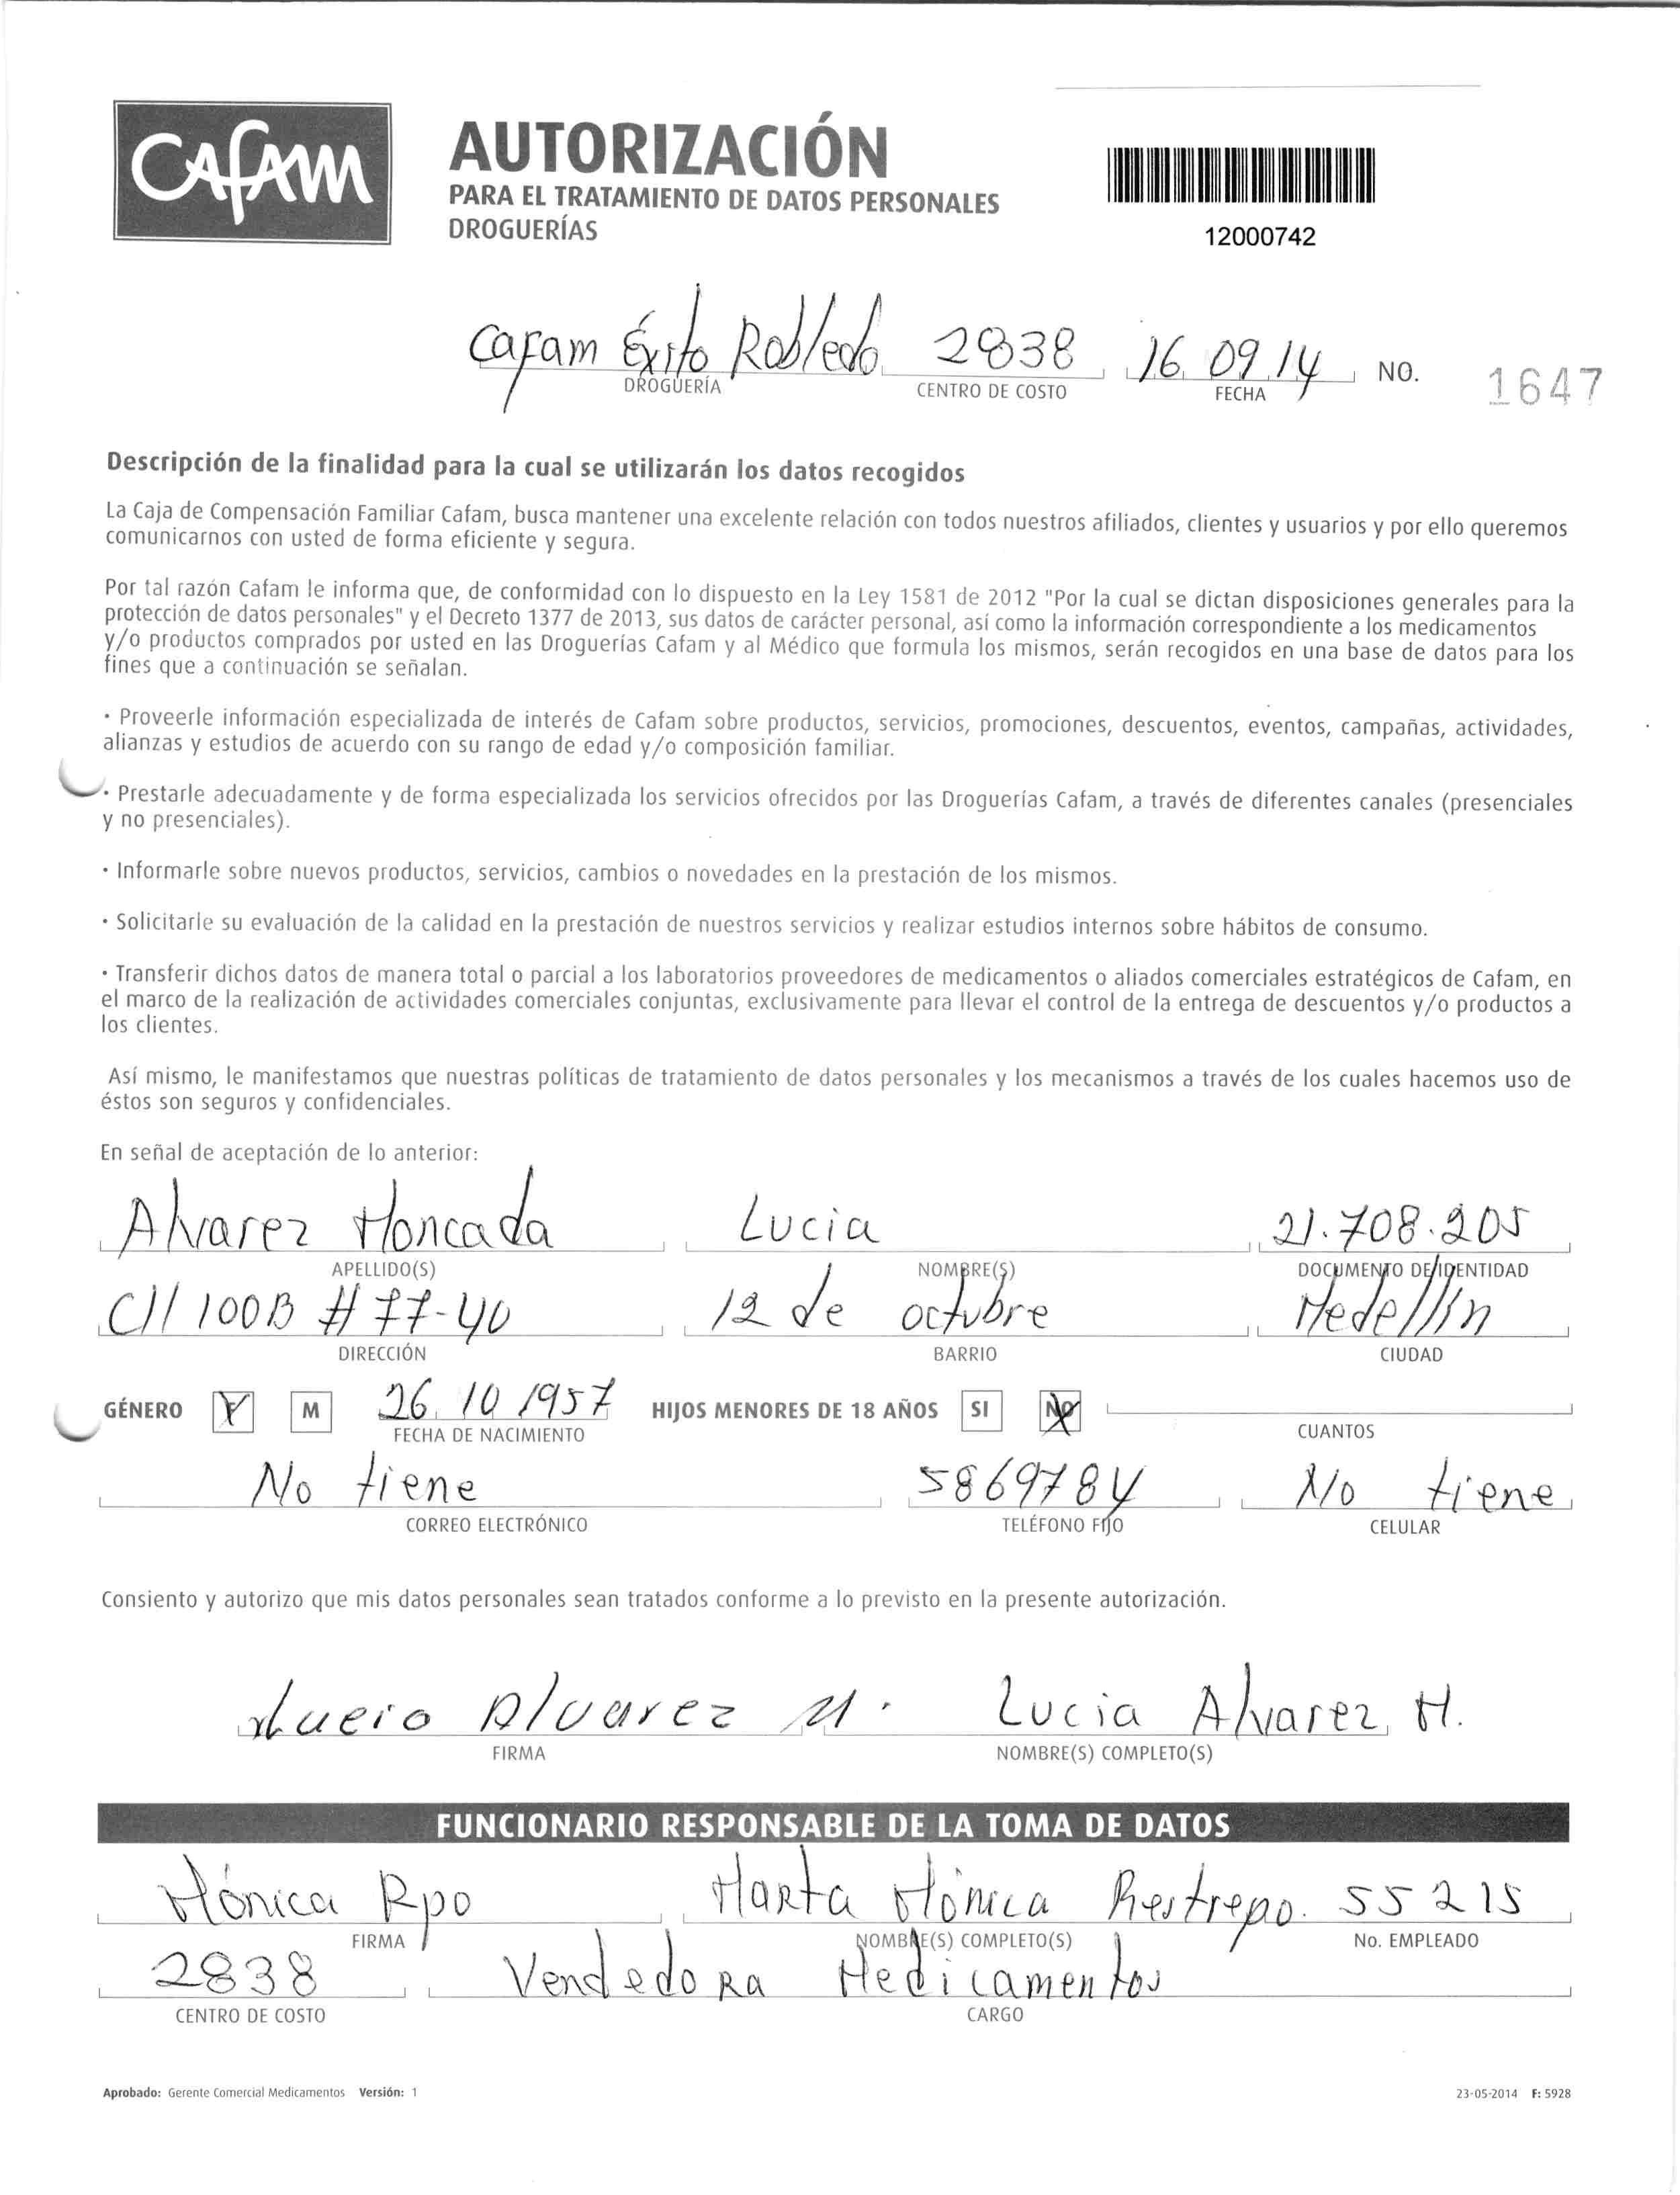 Cafam
AUTORIZACIÓN
PARA EL TRATAMIENTO DE DATOS PERSONALES
DROGUERÍAS
12000742
Cafam Éxito Robledo 2838 16 09 14 NO. 1647
DROGUERÍA CENTRO DE COSTO FECHA
Descripción de la finalidad para la cual se utilizarán los datos recogidos
La Caja de Compensación Familiar Cafam, busca mantener una excelente relación con todos nuestros afiliados, clientes y usuarios y por ello queremos
comunicarnos con usted de forma eficiente y segura.
Por tal razón Cafam le informa que, de conformidad con lo dispuesto en la Ley 1581 de 2012 "Por la cual se dictan disposiciones generales para la
protección de datos personales" y el Decreto 1377 de 2013, sus datos de carácter personal, así como la información correspondiente a los medicamentos
y/o productos comprados por usted en las Droguerías Cafam y al Médico que formula los mismos, serán recogidos en una base de datos para los
fines que a continuación se señalan.
· Proveerle información especializada de interés de Cafam sobre productos, servicios, promociones, descuentos, eventos, campañas, actividades,
alianzas y estudios de acuerdo con su rango de edad y/o composición familiar.
· Prestarle adecuadamente y de forma especializada los servicios ofrecidos por las Droguerías Cafam, a través de diferentes canales (presenciales
y no presenciales).
· Informarle sobre nuevos productos, servicios, cambios o novedades en la prestación de los mismos.
· Solicitarle su evaluación de la calidad en la prestación de nuestros servicios y realizar estudios internos sobre hábitos de consumo.
· Transferir dichos datos de manera total o parcial a los laboratorios proveedores de medicamentos o aliados comerciales estratégicos de Cafam, en
el marco de la realización de actividades comerciales conjuntas, exclusivamente para llevar el control de la entrega de descuentos y/o productos a
los clientes.
Así mismo, le manifestamos que nuestras políticas de tratamiento de datos personales y los mecanismos a través de los cuales hacemos uso de
éstos son seguros y confidenciales.
En señal de aceptación de lo anterior:
Alvarez Moncada Lucia 21.708.205
APELLIDO(S) NOMBRE(S) DOCUMENTO DE IDENTIDAD
Cll 100B # 77-40 12 de octubre Medellín
DIRECCIÓN BARRIO CIUDAD
GÉNERO F M 26 10 1957 HIJOS MENORES DE 18 AÑOS SI NO
FECHA DE NACIMIENTO CUANTOS
No tiene 5869784 No tiene
CORREO ELECTRÓNICO TELÉFONO FIJO CELULAR
Consiento y autorizo que mis datos personales sean tratados conforme a lo previsto en la presente autorización.
Lucia Alvarez M. Lucia Alvarez M.
FIRMA NOMBRE(S) COMPLETO(S)
FUNCIONARIO RESPONSABLE DE LA TOMA DE DATOS
Mónica Rpo Marta Mónica Restrepo. 55215
FIRMA NOMBRE(S) COMPLETO(S) No. EMPLEADO
2838 Vendedora Medicamentos
CENTRO DE COSTO CARGO
Aprobado: Gerente Comercial Medicamentos Versión: 1 23-05-2014 F: 5928